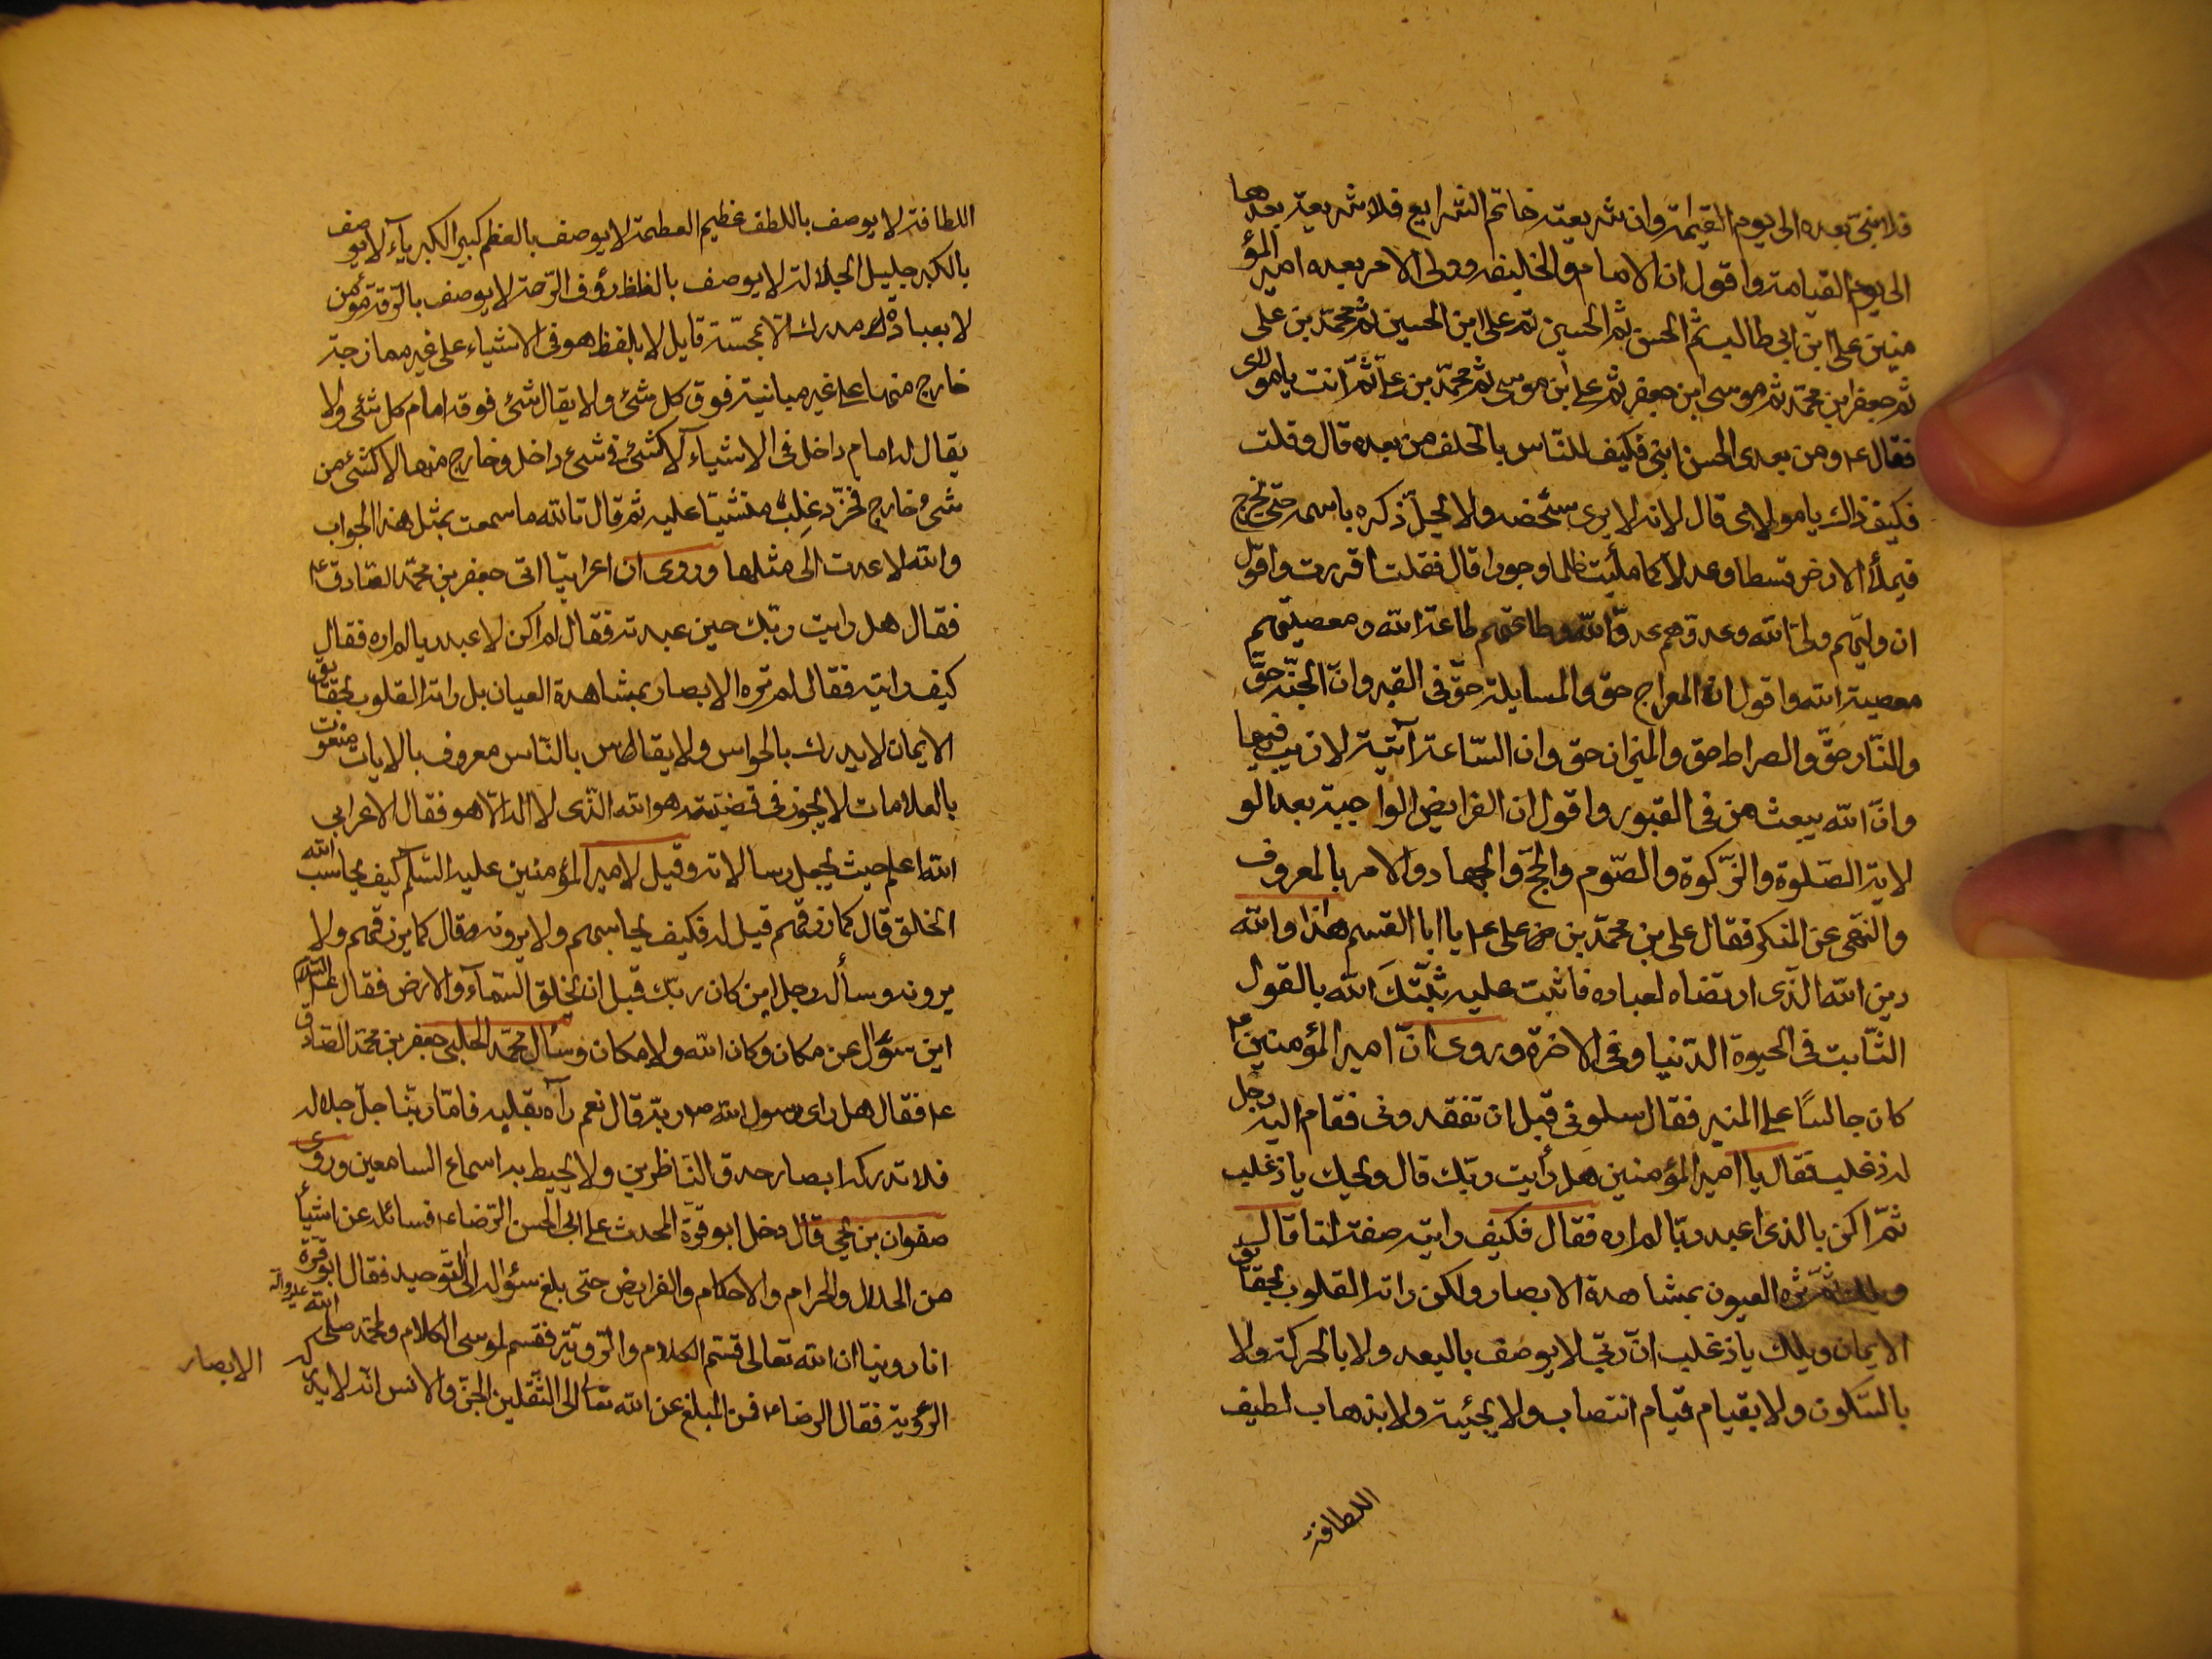 فلا نبىّ بعده الى يوم القيمة وان شريعته خاتم الشرايع فلا شريعة بعدها
الى يوم القيامة واقول ان الامام والخليفه وولى الامر بعده امير المؤ
منين على ابن ابى طالب ثم الحسن ثم الحسين ثم على ابن الحسين ثم محمّد بن على
ثم جعفر ابن محمّد ثم موسى ابن جعفر ثم على ابن موسى ثم محمّد بن على ثمّ انت يا مولاى
فقال ع و من بعدى الحسن ابنى فكيف للنّاس بالخلف من بعده قال وقلت
فكيف ذاك يا مولاى قال لانه لا يرى شخصه ولا يحلّ ذكره باسمه حتى يخرج
فيملأ الارض قسطا وعدلا كما ملئت ظلما وجورا قال فقلت اقررت واقول
ان وليّهم ولىّ الله وعدوّهم عدوّ الله وطاعتهم طاعة الله ومعصيتهم
معصية الله واقول ان المعراج حق والمسايلة حقّ فى القبر وانّ الجنّة حقّ
والنّار حقّ والصراط حق والميزان حق وان السّاعة آتية لا ريب فيها
وانّ الله يبعث من فى القبور واقول ان الفرايض الواجبة بعد الو
لاية الصّلوة والزّكوة والصّوم والحجّ والجهاد والامر بالمعروف
والنّهى عن المنكر فقال على بن محمّد بن على ع يا ابا القسم هذا والله
دين الله الذّى ارتضاه لعباده فاثبت عليه ثبّتك الله بالقول
الثّابت فى الحيوة الدّنيا وفى الاخرة وروى انّ امير المؤمنين ع
كان جالسًا على المنبر فقال سلونى قبل ان تفقدونى فقام اليه رجل
له ذغلب فقال يا امير المؤمنين هل رأيت ربّك قال ويحك يا ذغلب
ثمّ اكن بالذى اعبد ربّا لم اره فقال فكيف رايته صفه لنا قال
ويلك لم تره العيون بمشاهدة الابصار ولكن راته القلوب بحقايق
الايمان ويلك يا ذغلب انّ ربّى لا يوصف بالبعد ولا بالحركة ولا
بالسّكون ولا بقيام قيام انتصاب ولا بجيئية ولا بذهاب لطيف
اللطافة
اللطافة لا يوصف باللطف عظيم العظمة لا يوصف بالعظم كبير الكبرياء لا يوصف
بالكبر جليل الجلالة لا يوصف بالغلظ رؤف الرّحمة لا يوصف بالرّقة مؤمن
لا بعبادة مدرك لا بمجسّة قايل لا بلفظ هو فى الاشياء على غير ممازجة
خارج منها على غير مباينة فوق كل شئ ولا يقال شئ فوقه امام كل شئ ولا
يقال له امام داخل فى الاشياء لا كشئ فى شئ داخل وخارج منها لا كشئ من
شئ خارج فخرّ ذغلب مغشيّا عليه ثم قال تالله ما سمعت بمثل هذا الجواب
والله لا عدت الى مثلها وروى ان اعرابيّا اتى جعفر بن محمّد الصّادق ع
فقال هل رايت ربّك حين عبدته فقال لم اكن لاعبد ربا لم اره فقال
كيف رايته فقال لم تره الابصار بمشاهدة العيان بل راته القلوب بحقايق
الايمان لا يدرك بالحواس ولا يقاس بالنّاس معروف بالايات منعوت
بالعلامات لا يجوز فى قضيّته هو الله الذّى لا اله الّا هو فقال الاعرابى
الله اعلم حيث يجعل رسالاته وقيل لامير المؤمنين عليه السّلم كيف يحاسب الله
الخلق قال كما رزقهم قيل له فكيف يحاسبهم ولا يرونه وقال كما يرزقهم ولا
يرونه وسأله رجل اين كان ربّك قبل ان يخلق السّمآء والارض فقال عليه السّلام
اين سؤال عن مكان وكان الله ولا مكان وسأل محمّد الحلبى جعفر بن محمّد الصّادق
ع فقال هل راى رسول الله ص ربّه قال نعم رآه بقلبه فامّا ربّنا جلّ جلاله
فلا تدركه ابصار حدق النّاظرين ولا يحيط به اسماع السامعين وروى
صفوان بن يحيى قال دخل ابو قرّة المحدث على ابى الحسن الرّضا ع فسائله عن اشيأ
من الحلال والحرام والاحكام والفرايض حتى بلغ سؤاله الى التّوحيد فقال ابو قرّة
انا روينا ان الله تعالى قسّم الكلام والرّويّة فقسم لموسى الكلام ولمحمّد صلى الله عليه واله
الرؤية فقال الرضا ع فمن المبلغ عن الله تعالى الى الثّقلين الجنّ والانس انّه لا يدركه
الابصار